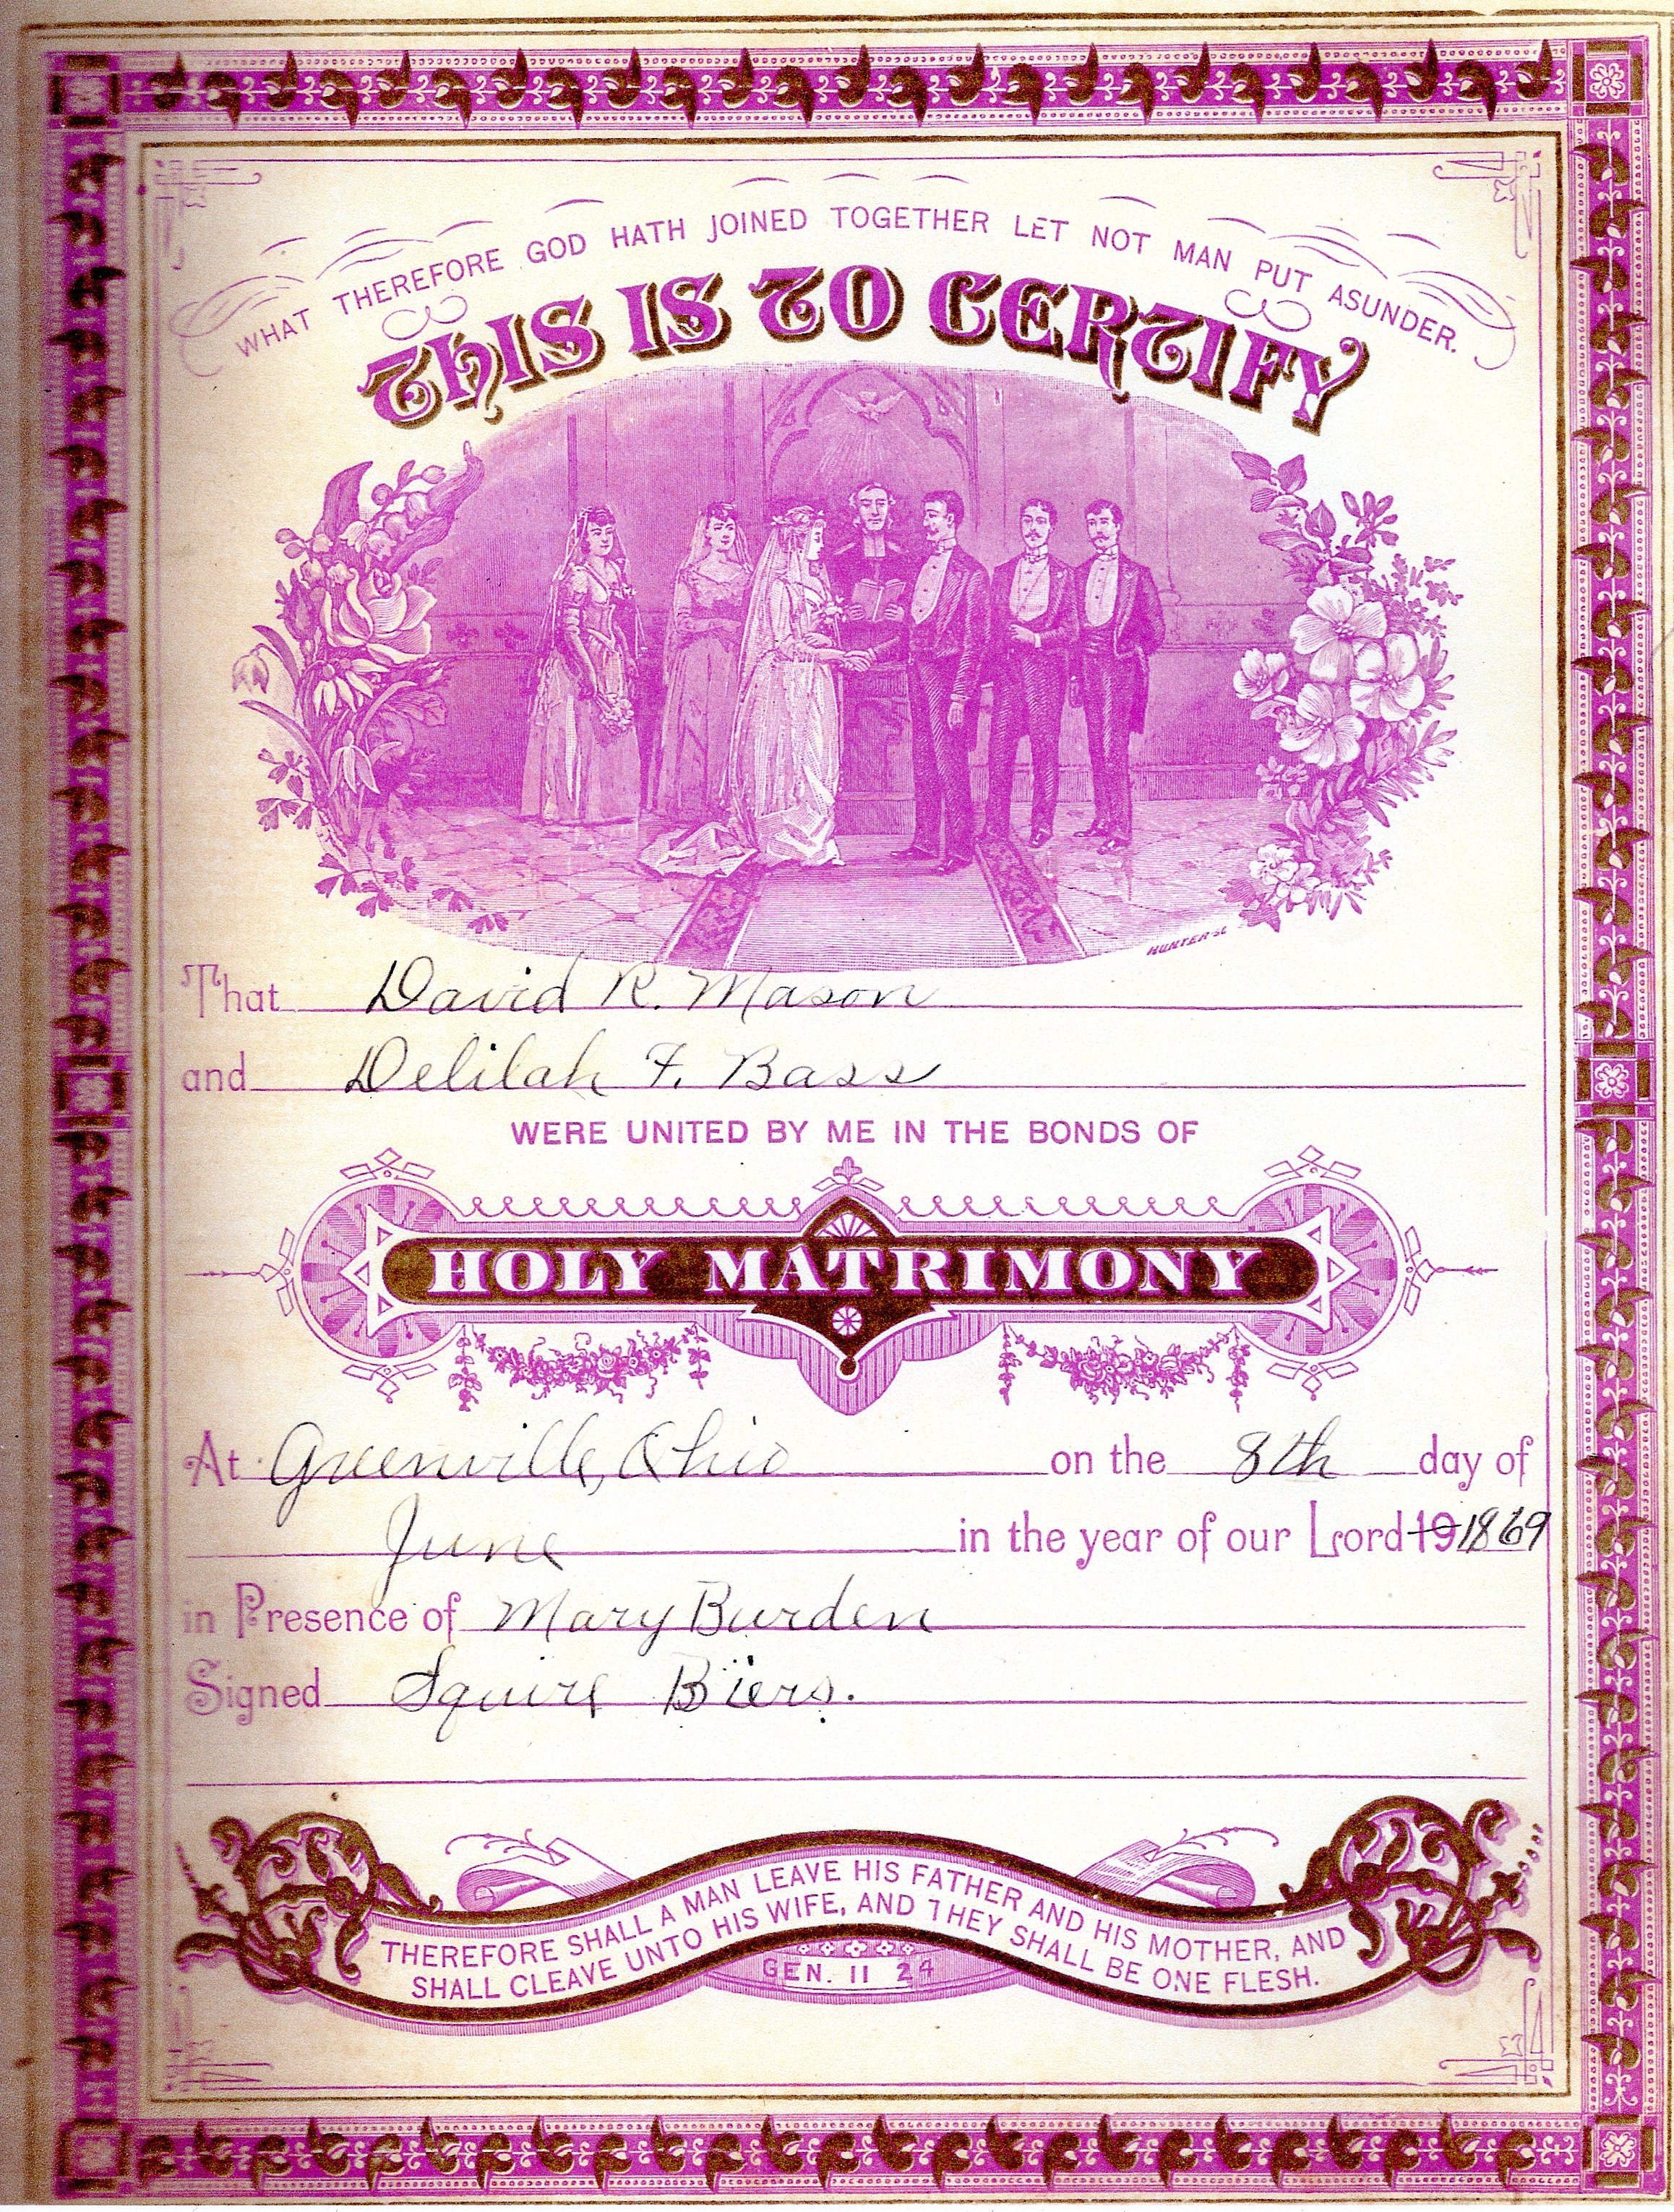 WHAT THEREFORE GOD HATH JOINED TOGETHER LET NOT MAN PUT ASUNDER.
THIS IS TO CERTIFY
HUNTER SC
That David R. Mason
and Delilah F. Bass
WERE UNITED BY ME IN THE BONDS OF
HOLY MATRIMONY
At Greenville, Ohio on the 8th day of
June in the year of our Lord 19 1869
in Presence of Mary Burden
Signed Squire Biers.
THEREFORE SHALL A MAN LEAVE HIS FATHER AND HIS MOTHER, AND
SHALL CLEAVE UNTO HIS WIFE, AND THEY SHALL BE ONE FLESH.
GEN. II 24